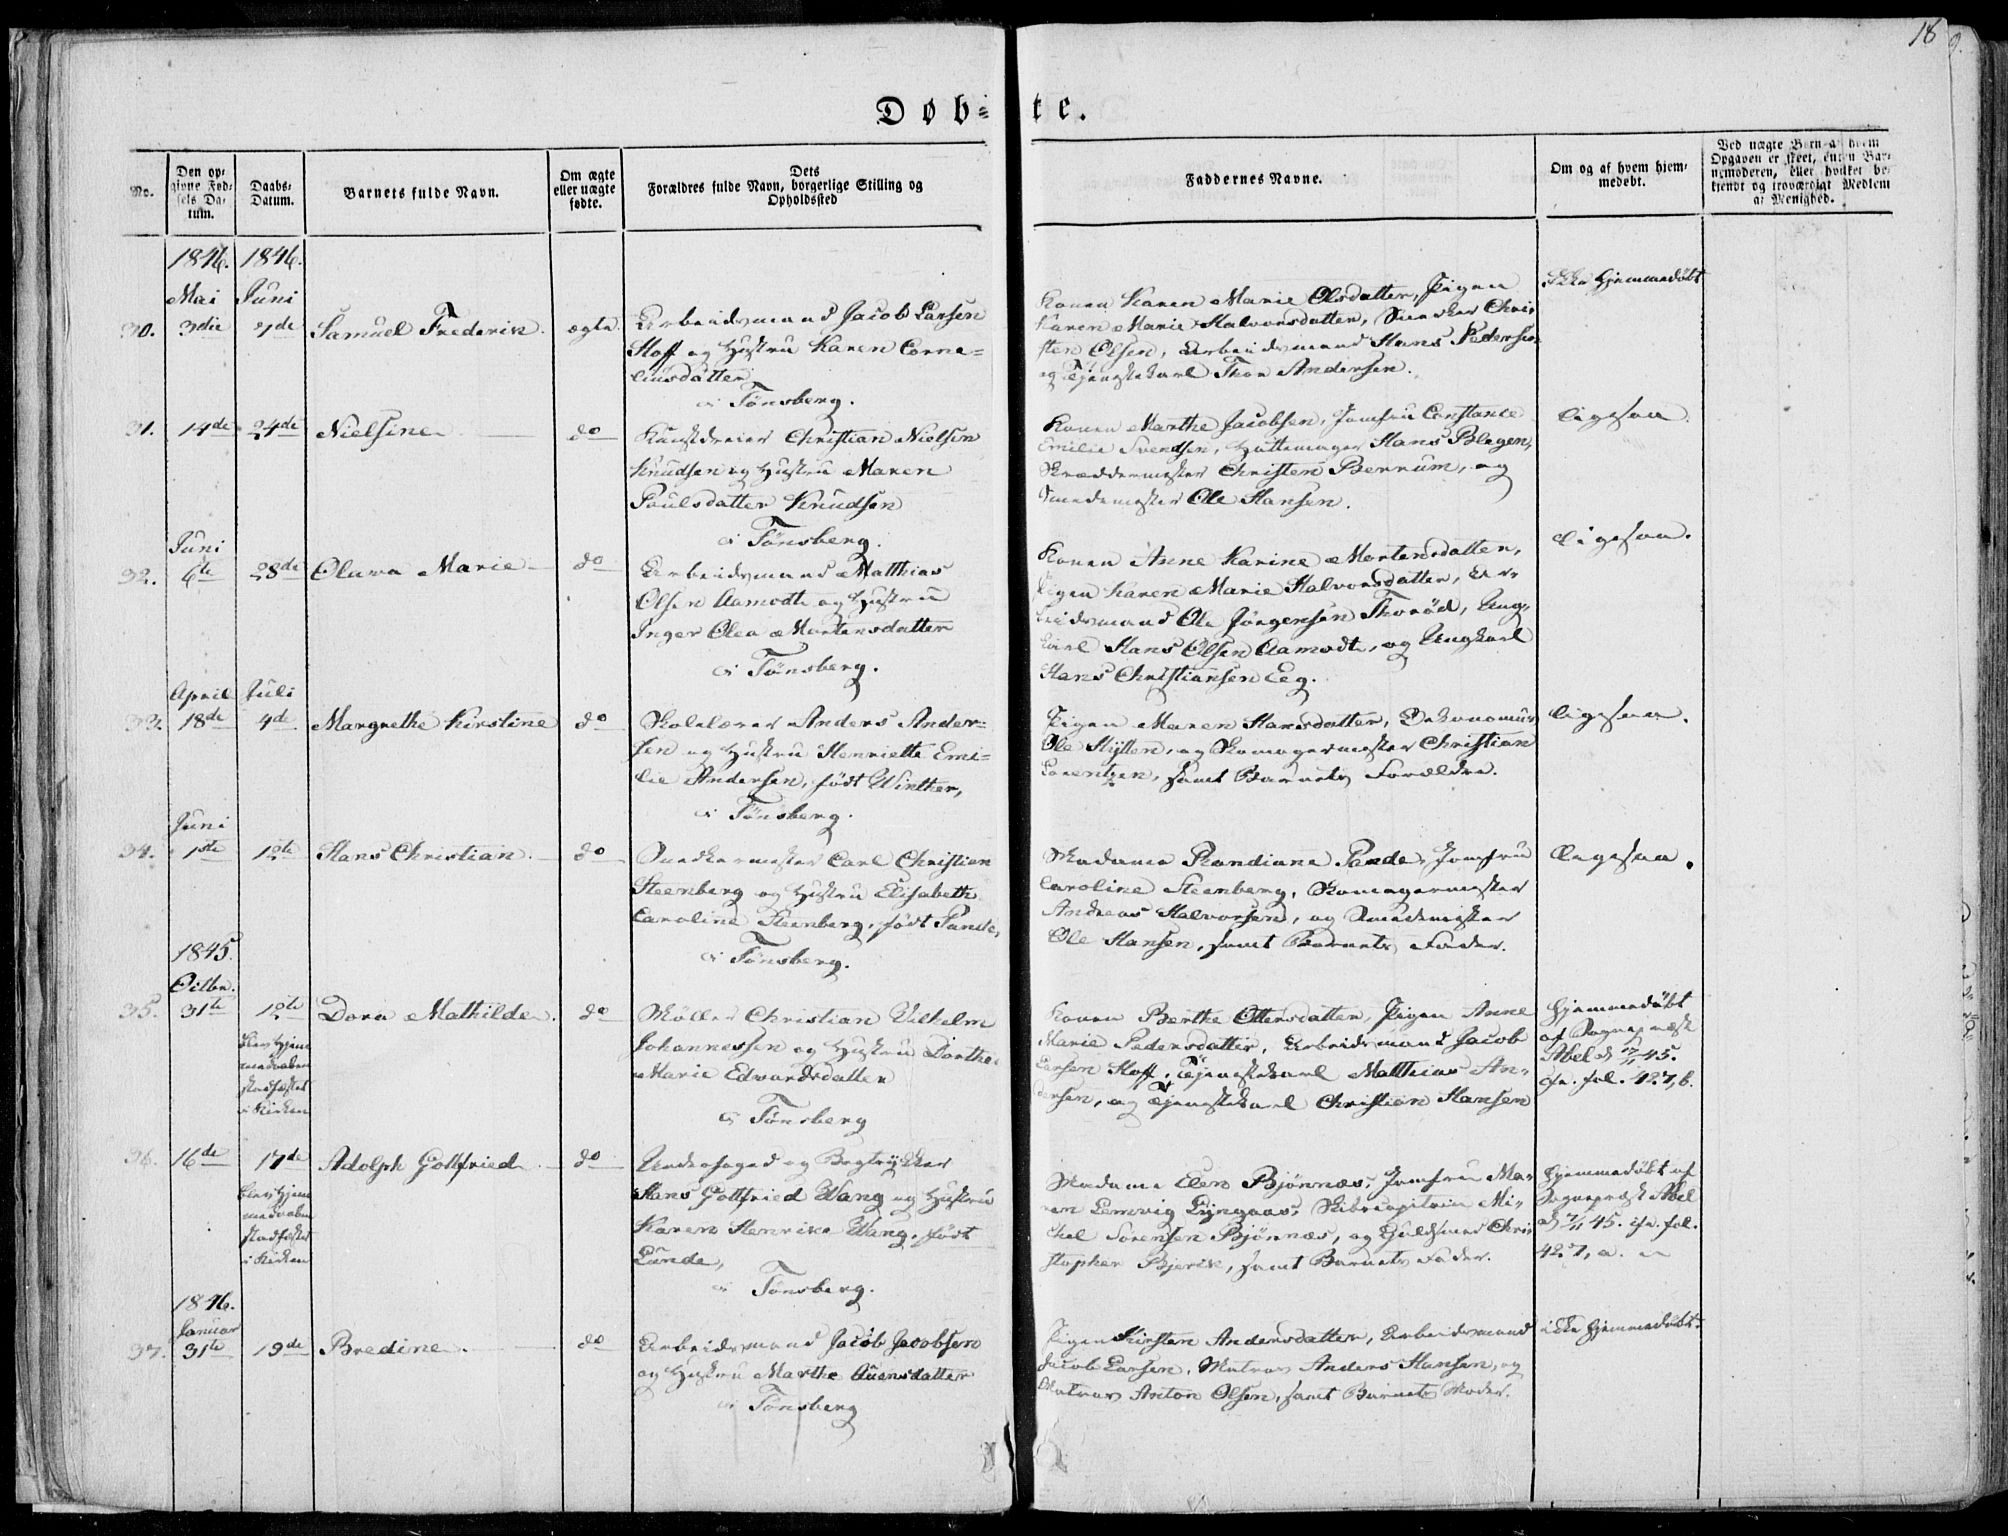 18
Døb=te.
No.
Den op-
givne Fød-
sels Da-
tum.
Daabs-
Datum.
Barnets fulde Navn.
Om ægte
eller uægte
fødte.
Dets
Forældres fulde Navn, borgerlige Stilling og
Opholdssted
Faddernes Navne.
Om og af hvem hjem-
medøbt.
Ved uægte Børn af hvem
Opgaven er skeet, enten Bar-
nemoderen, eller hvilket be-
kjendt og troværdigt Medlem
af Menighed.
1846. 1846.
Mai Juni
30. 3die 7de Samuel Frederik. ægte.
Arbeidsmand Jacob Larsen
Hoff og Hustru Karen Corne=
liusdatter
i Tønsberg.
Konen Karen Marie Olsdatter, Pigen
Karen Marie Halvorsdatter, Snedker Chri-
sten Olsen, Arbeidsmand Hans Pedersen
og Tjenestekarl Thor Andersen.
Ikke hjemmedøbt
31. 14de 24de Nielsine do
Kunstdreier Christian Nielsen
Knudsen og Hustru Maren
Poulsdatter Knudsen
i Tønsberg.
Konen Marthe Jacobsen, Jomfru Constance
Emilie Svendsen, Hattemager Hans Blegen,
Skræddermester Christen Berrum, og
Smedemester Ole Hansen.
ligesaa.
Juni
32. 6te 28de Olava Marie do
Arbeidsmand Matthias
Olsen Aamodt og Hustru
Inger Olea Mortensdatter
i Tønsberg.
Konen Anne Karine Mortensdatter,
Pigen Karen Marie Halvorsdatter, Ar-
beidsmand Ole Jörgensen Thoröd, Ung-
karl Hans Olsen Aamodt, og Ungkarl
Hans Christiansen Eeg.
ligesaa.
April Juli
33. 18de 4de Margrethe Kirstine do
Skolelærer Anders Ander=
sen og Hustru Henriette Emi=
lie Andersen, født Winther,
i Tønsberg.
Pigen Maren Hansdatter, Oekonomus
Ole Hytten, og Skomagermester Christian
Lorentzen, samt Barnets Forældre.
ligesaa.
Juni
34. 1ste 12te Hans Christian. do
Snedkermester Carl Christian
Steenberg og Hustru Elisabeth
Caroline Steenberg, født Paade,
i Tønsberg.
Madame Randiane Paade, Jomfru
Caroline Steenberg, Skomagermester
Andreas Halvorsen, og Smedemester
Ole Hansen, samt Barnets Fader.
ligesaa.
1845.
Octbr.
35. 31te 12te Dora Mathilde. do
blev hjem-
medaaben
stadfæstet
i Kirken
Møller Christian Vilhelm
Johannessen og Hustru Dorthe
Marie Edvardsdatter
i Tønsberg
Konen Berthe Ottersdatter, Pigen Anne
Marie Pedersdatter, Arbeidsmand Jacob
Larsen Hoff, Tjenestekarl Matthias An-
dersen, og Tjenestekarl Christian Hansen
hjemmedøbt
af Sognepræst
Abel d 45.
cfr. fol. 427, b.
36. 16de 17de Adolph Gottfried do
blev hjem-
medaaben
stadfæstet
i Kirken
Underfoged og Bogtrykker
Hans Gottfried Wang og Hustru
Karen Henrike Wang, født
Lunde,
i Tønsberg.
Madame Elen Bjönnæs, Jomfru Ma-
ren Lemvig Lyngaas, Skibscapitain Mi-
chel Sörensen Bjönnæs, og Guldsmed Chri-
stopher Bjerk, samt Barnets Fader.
hjemmedøbt af
Sognepræst Abel
d 45. cfr. fol.
427, a.
1846.
Januar
37. 31te 19de Bredine. do
Arbeidsmand Jacob Jacobsen
og Hustru Marthe Auensdatter
i Tønsberg
Pigen Kirsten Andersdatter, Arbeidsmand
Jacob Larsen, Matros Anders Hansen, og
Matros Anton Olsen, samt Barnets Moder.
ikke hjemmedøbt.